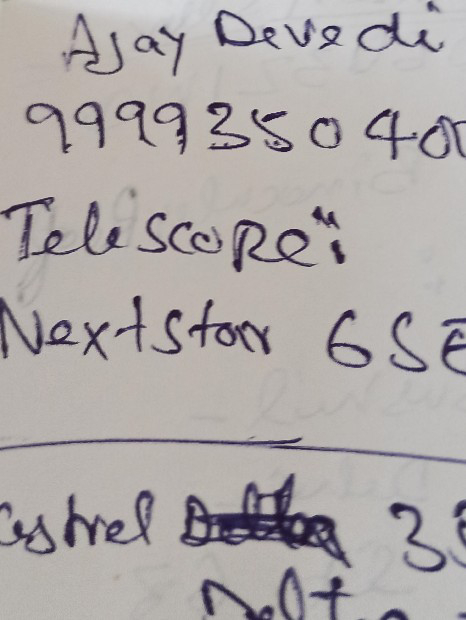 Ajay Devedi
9999350400
Telescope:
Nextstar 6SE
estrel 35
Delta